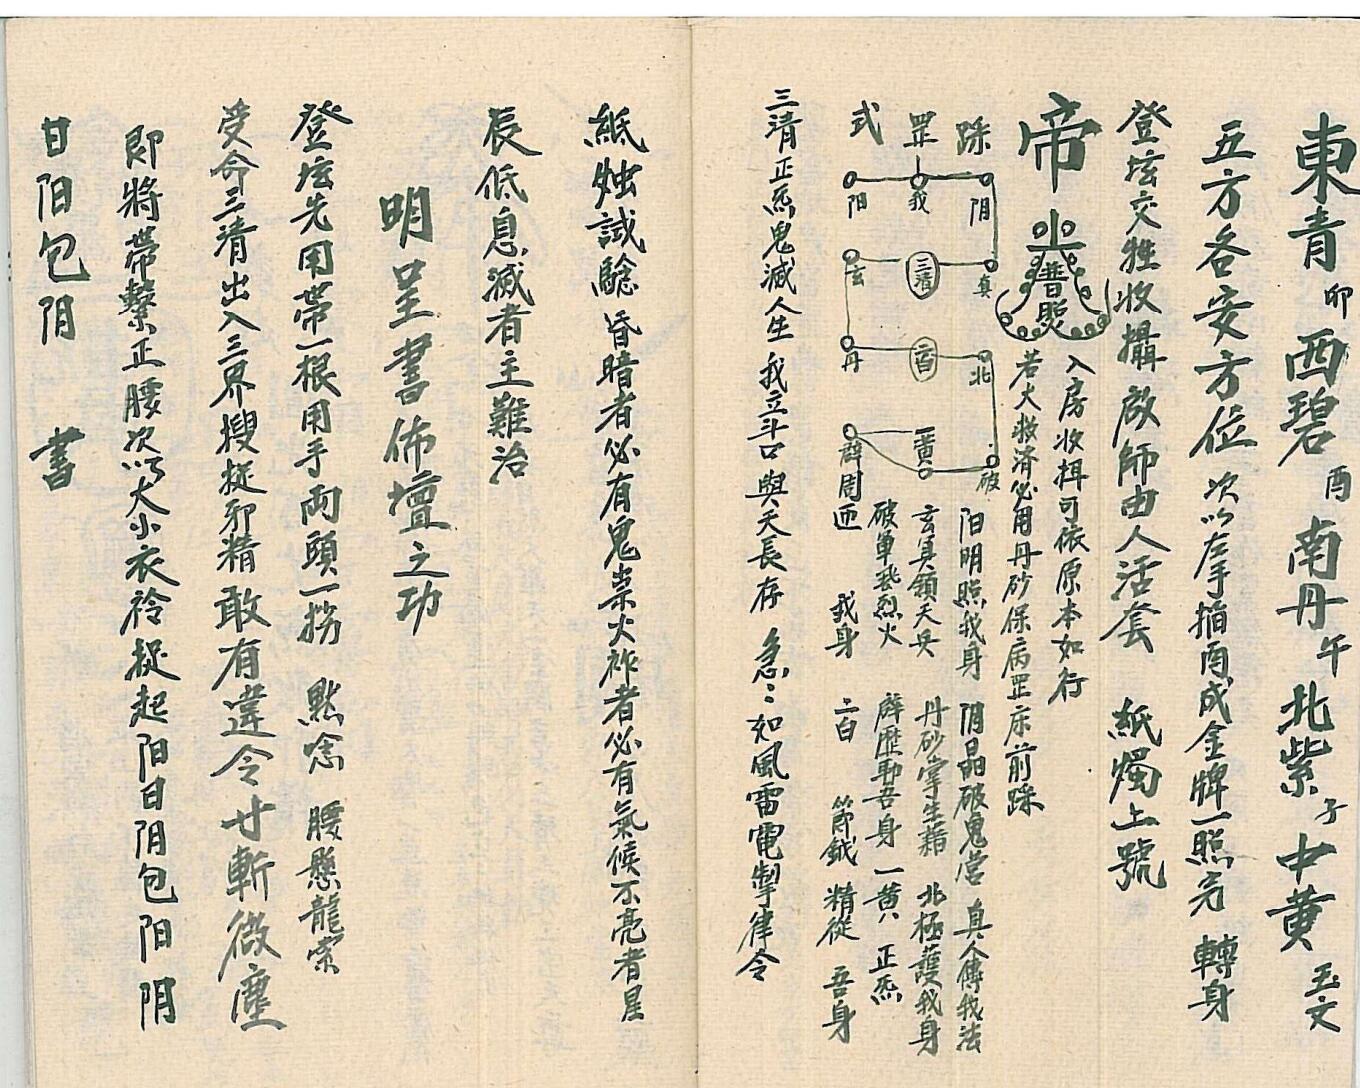 東青 卯 西碧 酉 南丹 午 北紫 子 中黄 玉文
五方各安方位 次以左手掐酉成金牌一照完 轉身
登坛交牲收攝啟師由人活套 紙燭上號
帝
普照
入房收捐可依原本如行
若火救済必用丹砂保病罡床前踩
踩罡式
阴 我 阳
真 三清 玄
北 二白 丹
破 一黄 霹
阳明照我身 阴晶破鬼营 真人傳我法
玄冥領天兵 丹砂掌生籍 北極護我身
破軍飛烈火 霹歷助吾身 一黄 正炁
周匝 我身 二白 節鉞 精從 吾身
三清正炁鬼滅人生 我立斗口與天長存 急〻如風雷電掣律令
紙烛試驗 昏暗者必有鬼祟火祚者必有氣候不亮者星
辰低息滅者主難治
明呈書佈壇之功
登坛先用帶一根用手両頭一拐 黙念 腰懸龍索
受命三清出入三界搜捉邪精敢有違令寸斬微塵
即將帶繫正腰次以大小衣衿捉起阳日阴包阳阴
甘阳包阴 書